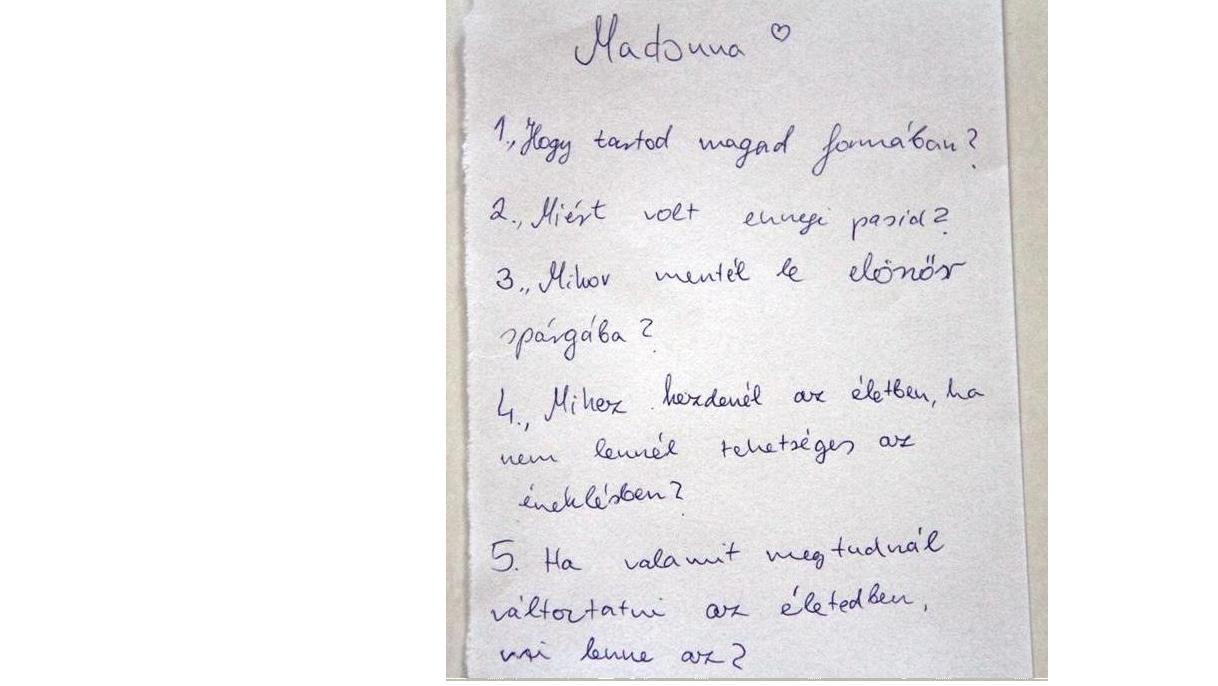 Madonna ♡
1., Hogy tartod magad formában?
2., Miért volt ennyi pasid?
3., Mikor mentél le először
spárgába?
4., Mihez kezdenél az életben, ha
nem lennél tehetséges az
éneklésben?
5. Ha valamit megtudnál
változtatni az életedben,
mi lenne az?